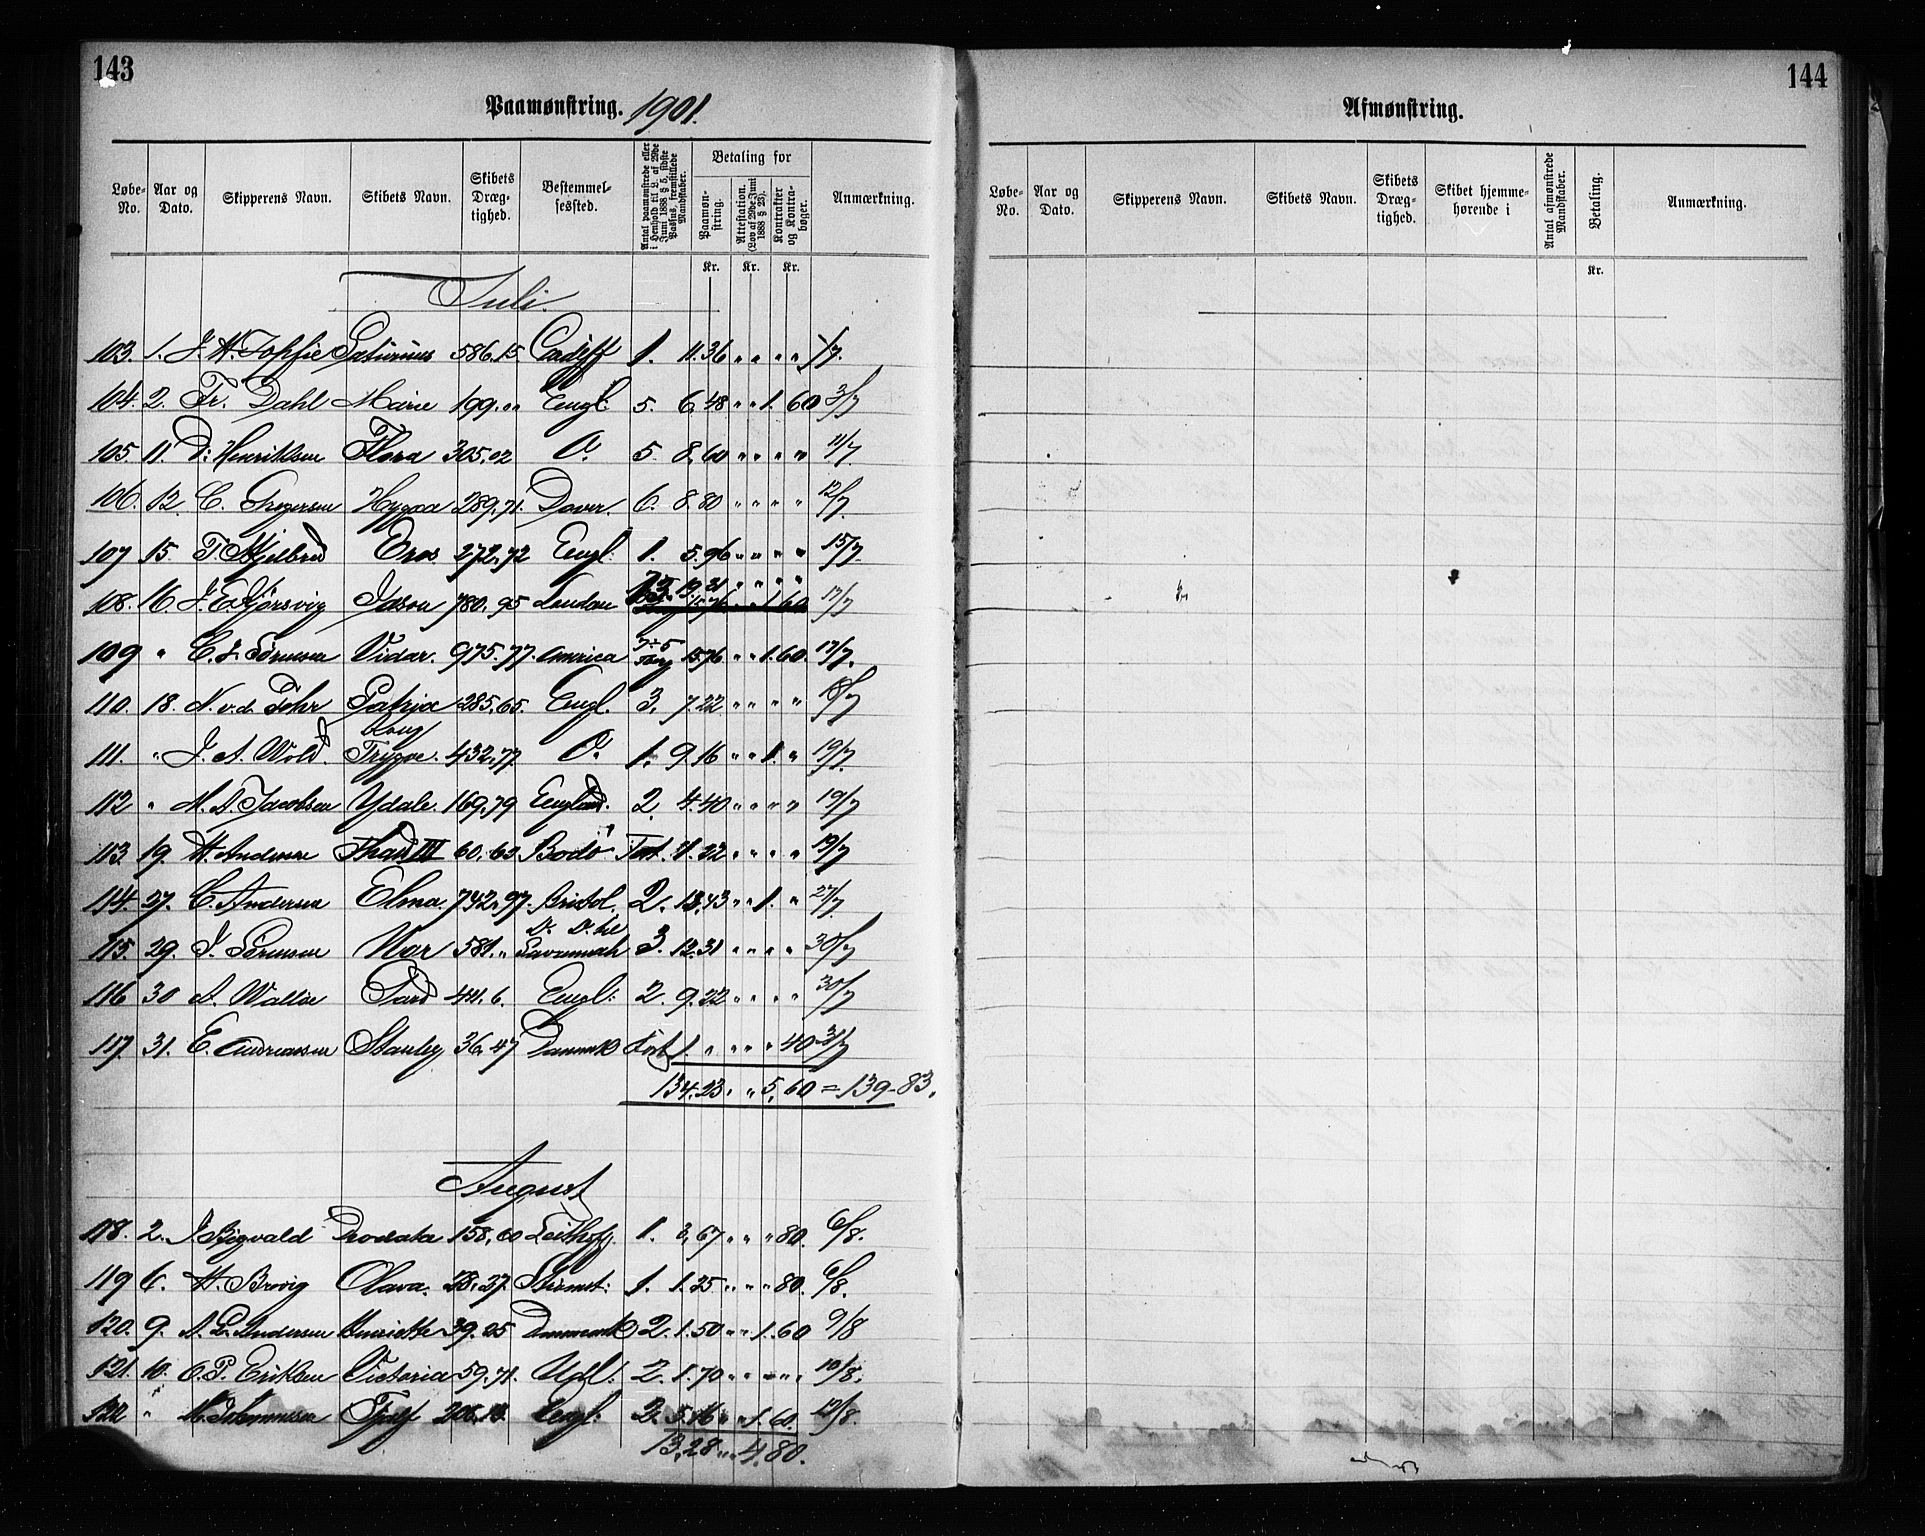 143
Paamønstring. 1901.
Løbe-No. Aar og Dato. Skipperens Navn. Skibets Navn. Skibets Dræg-tighed. Bestemmel-sessted. Antal paamønstrede eller i Henhold til L. af 29de Juni 1888 § 5, sidste Passus, fremstillede Mandskaber. Betaling for Paamøn-string. Attestation. (Lov af 29de Juni 1888 § 23). Kontrakter og Kontra-bøger. Anmærkning.
Kr. Kr. Kr.
Juli.
103. 1. J. H. Saturnus 586.15. Cardiff 1. 11.36 " " " " 1/7.
104. 2. Fr. Dahl Marie 199. " " Engl: 5. 6.48 " " 1. 60 3/7
105. 11. D: Henriksen Flora 305.02 D. 5. 8.60 " " " " 11/7.
106. 12. C. Hygæa 289.71. Dover. 6. 8.80 " " " " 12/7.
107 15. T. Eros 272.72 Engl: 1. 5.96 " " " " 15/7.
108. 16. J. E. Idsou 780.95 London 19.21 " " " " 17/7
109 " C. J. Sørensen Vidar. 975.77. America 7+5 15.76 " " 1.60. 17/7.
110. 18. N. v. d. Fehr Patria 285.65. Engl. 3. 7.22 " " " " 18/7
111. " J. A. Wold. Trygve. 432.77. D. 1. 9.16 " " 1. " 19/7.
112 " N. A. Jacobsen Ydale. 169.79 England. 2. 4.40 " " " " 19/7
113. 19. H. Andersen III 60.63 Bodø 1.22 " " " " 19/7
114. 27. C. Andersen Elma. 742.97. Bristol. 2. 13.43 " " 1. " 27/7.
D. D. til
115. 29. J. Sørensen Nor 581. " Savannah 3. 12.31 " " " " 30/7
116 30 A. Wattne Fard 441.6. Engl: 2. 9.22 " " " " 30/7
117. 31. E. Andreassen Stanley 36.47 Danmark 1. " " " " 40 31/7
134.23. " " 5.60 = 139-83.
August
118. 2. J. Sigvald Prodata 158.60 1. 3.67 " " " 80. 6/8.
119 6. H. Brovig Olava. 28.27. Strømst: 1. 1.25 " " " 80. 6/8.
120. 9. A. L. Andersen Henriette 39.25 Danmark 2. 1.50 " " 1.60 9/8
121. 10. O. P. Eriksen Victoria 59.71. Udl. 2. 1.70 " " " " 10/8.
122 " N. Fjalf 206.13. Engl: 2. 5.16 " " 1.60. 12/8.
13.28 " " 4.80.
144
Afmønstring.
Løbe-No. Aar og Dato. Skipperens Navn. Skibets Navn. Skibets Dræg-tighed. Skibet hjemme-hørende i Antal afmønstrede Mandskaber. Betaling. Anmærkning.
Kr.